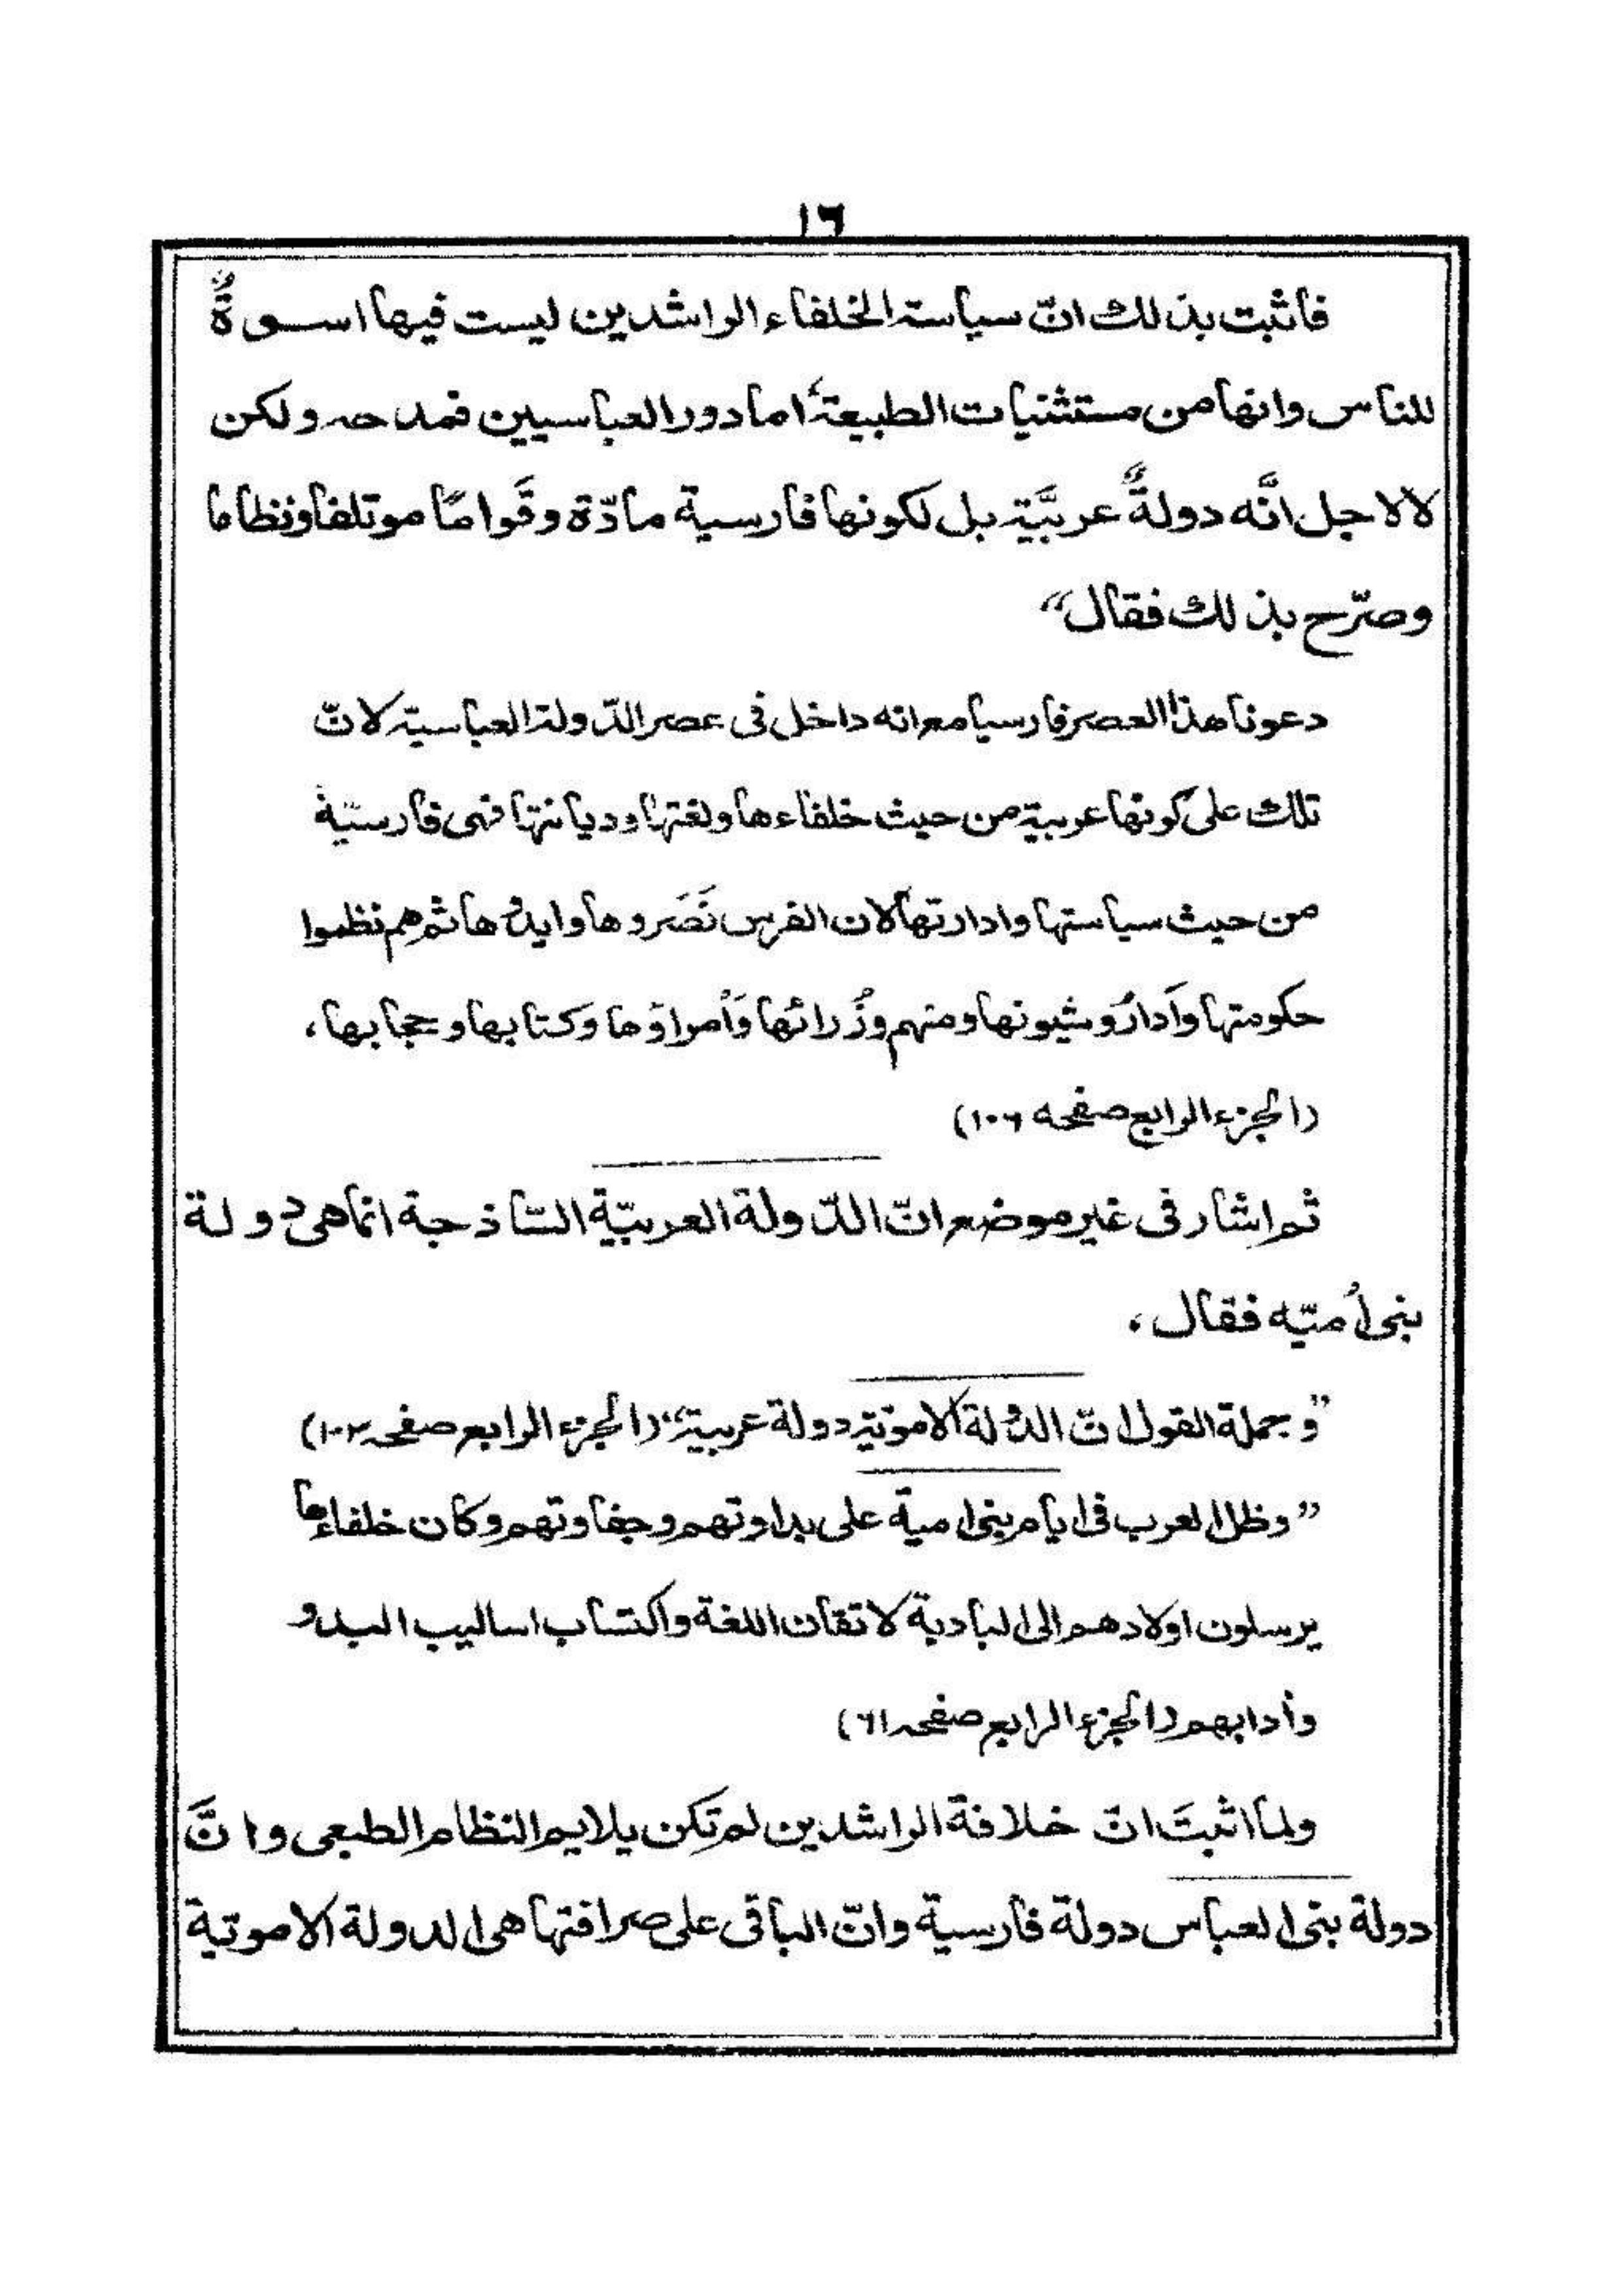 ١٦
فأثبت بذلك انّ سياسة الخلفاء الراشدين ليست فيها اسوةٌ
للناس وانها من مستثنيات الطبيعة، اما دور العباسيين فمدحه ولكن
لا لاجل انَّه دولةٌ عربيَّة بل لكونها فارسية مادّة وقَواما موتلفا ونظاما
وصرّح بذلك فقال“
دعونا هذا العصر فارسيا مع انه داخل فى عصر الدّولة العباسية لانّ
تلك على كونها عربية من حيث خلفاءها ولغتها وديانتها فهى فارسيّة
من حيث سياستها وادارتها لان الفرس نَصَروها وايدوها ثم هم نظموا
حكومتها وأدارُو شيونها ومنهم وُزرائها وَأُمراؤها وكتابها وحجابها،
(الجزء الرابع صفحه ١٠٦)
ثم اشار فى غير موضع انّ الدّولة العربيّة السّاذجة انما هى دولة
بنى أُميّه فقال،
”وجملة القول انّ الدولة الامويّة دولة عربية“ (الجزء الرابع صفحه ١٠٢)
”وظل العرب فى ايام بنى امية على بداوتهم وجفاوتهم وكان خلفاءها
يرسلون اولادهم الى البادية لاتقان اللغة واكتساب اساليب البدو
وأدابهم (الجزء الرابع صفحه ٦١)
ولما اثبتَ انّ خلافة الراشدين لم تكن يلايم النظام الطبعى وانَّ
دولة بنى العباس دولة فارسية وانّ الباقى على صرافتها هى الدولة الامويّة